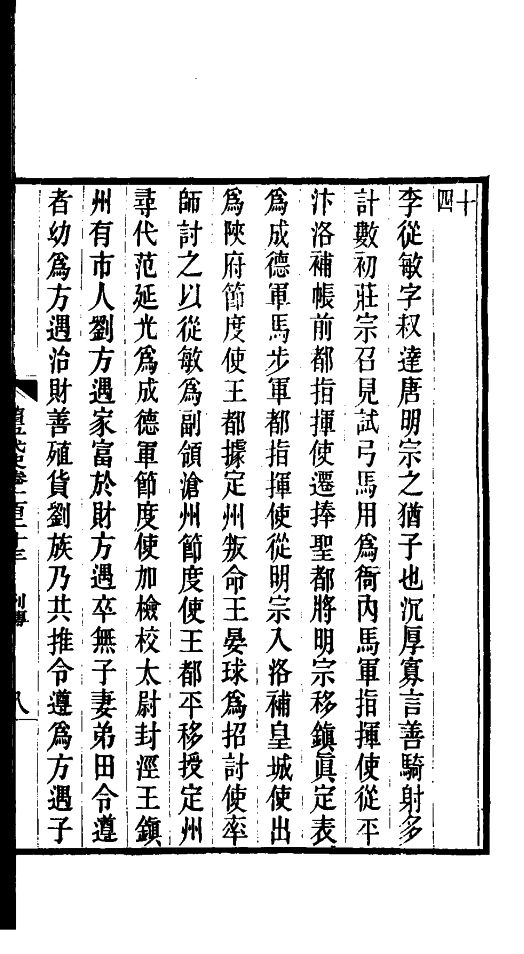 十四
李從敏字叔達唐明宗之猶子也沉厚寡言善騎射多
計數初莊宗召見試弓馬用爲衙內馬軍指揮使從平
汴洛補帳前都指揮使遷捧聖都將明宗移鎮眞定表
爲成德軍馬步軍都指揮使從明宗入洛補皇城使出
爲陝府節度使王都據定州叛命王晏球爲招討使率
師討之以從敏爲副領滄州節度使王都平移授定州
尋代范延光爲成德軍節度使加檢校太尉封涇王鎮
州有市人劉方遇家富於財方遇卒無子妻弟田令遵
者幼爲方遇治財善殖貨劉族乃共推令遵爲方遇子
列傳
八